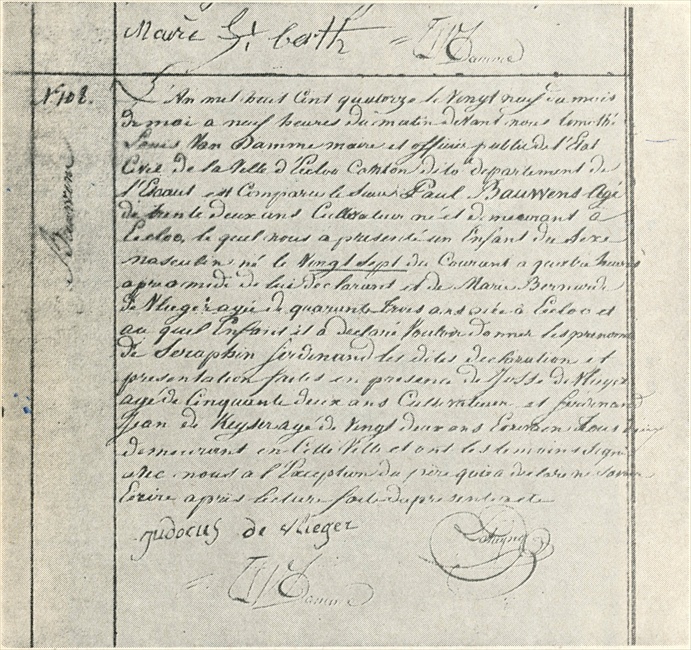 Maire St berth
Damme
No 108.
Bauwens
L'An mil huit Cent quatorze le Vingt neuf du mois
de mai a neuf heures du matin devant nous timothé
Louis Van Damme maire et officier public de l'Etat
Civil de la Ville d'Ecloo Canton de to departement de
l'Escaut est Comparu le sieur Paul Bauwens Agé
de trente deux ans Cultivateur né et demeurant à
Eecloo, le quel nous a presenté un Enfant du Sexe
masculin né le Vingt Sept du Courant a quatre heures
apres midi de lui declarant et de Marie Bernarde
de Vlieger agée de quarante trois ans née à Eecloo et
au quel Enfant il a declaré Vouloir donner les prenoms
de Seraphin ferdinand les dites declaration et
presentation faites en presence de Josse de Vlieger
agé de Cinquante deux ans Cultivateur et ferdinand
Jean de Keyser agé de Vingt deux ans Ecrivain tous deux
demeurant en Cette Ville et ont les temoins signé
avec nous a l'Exception du père qui a declaré ne savoir
Ecrire après lecture faite du present acte
judocus de vlieger
Damme